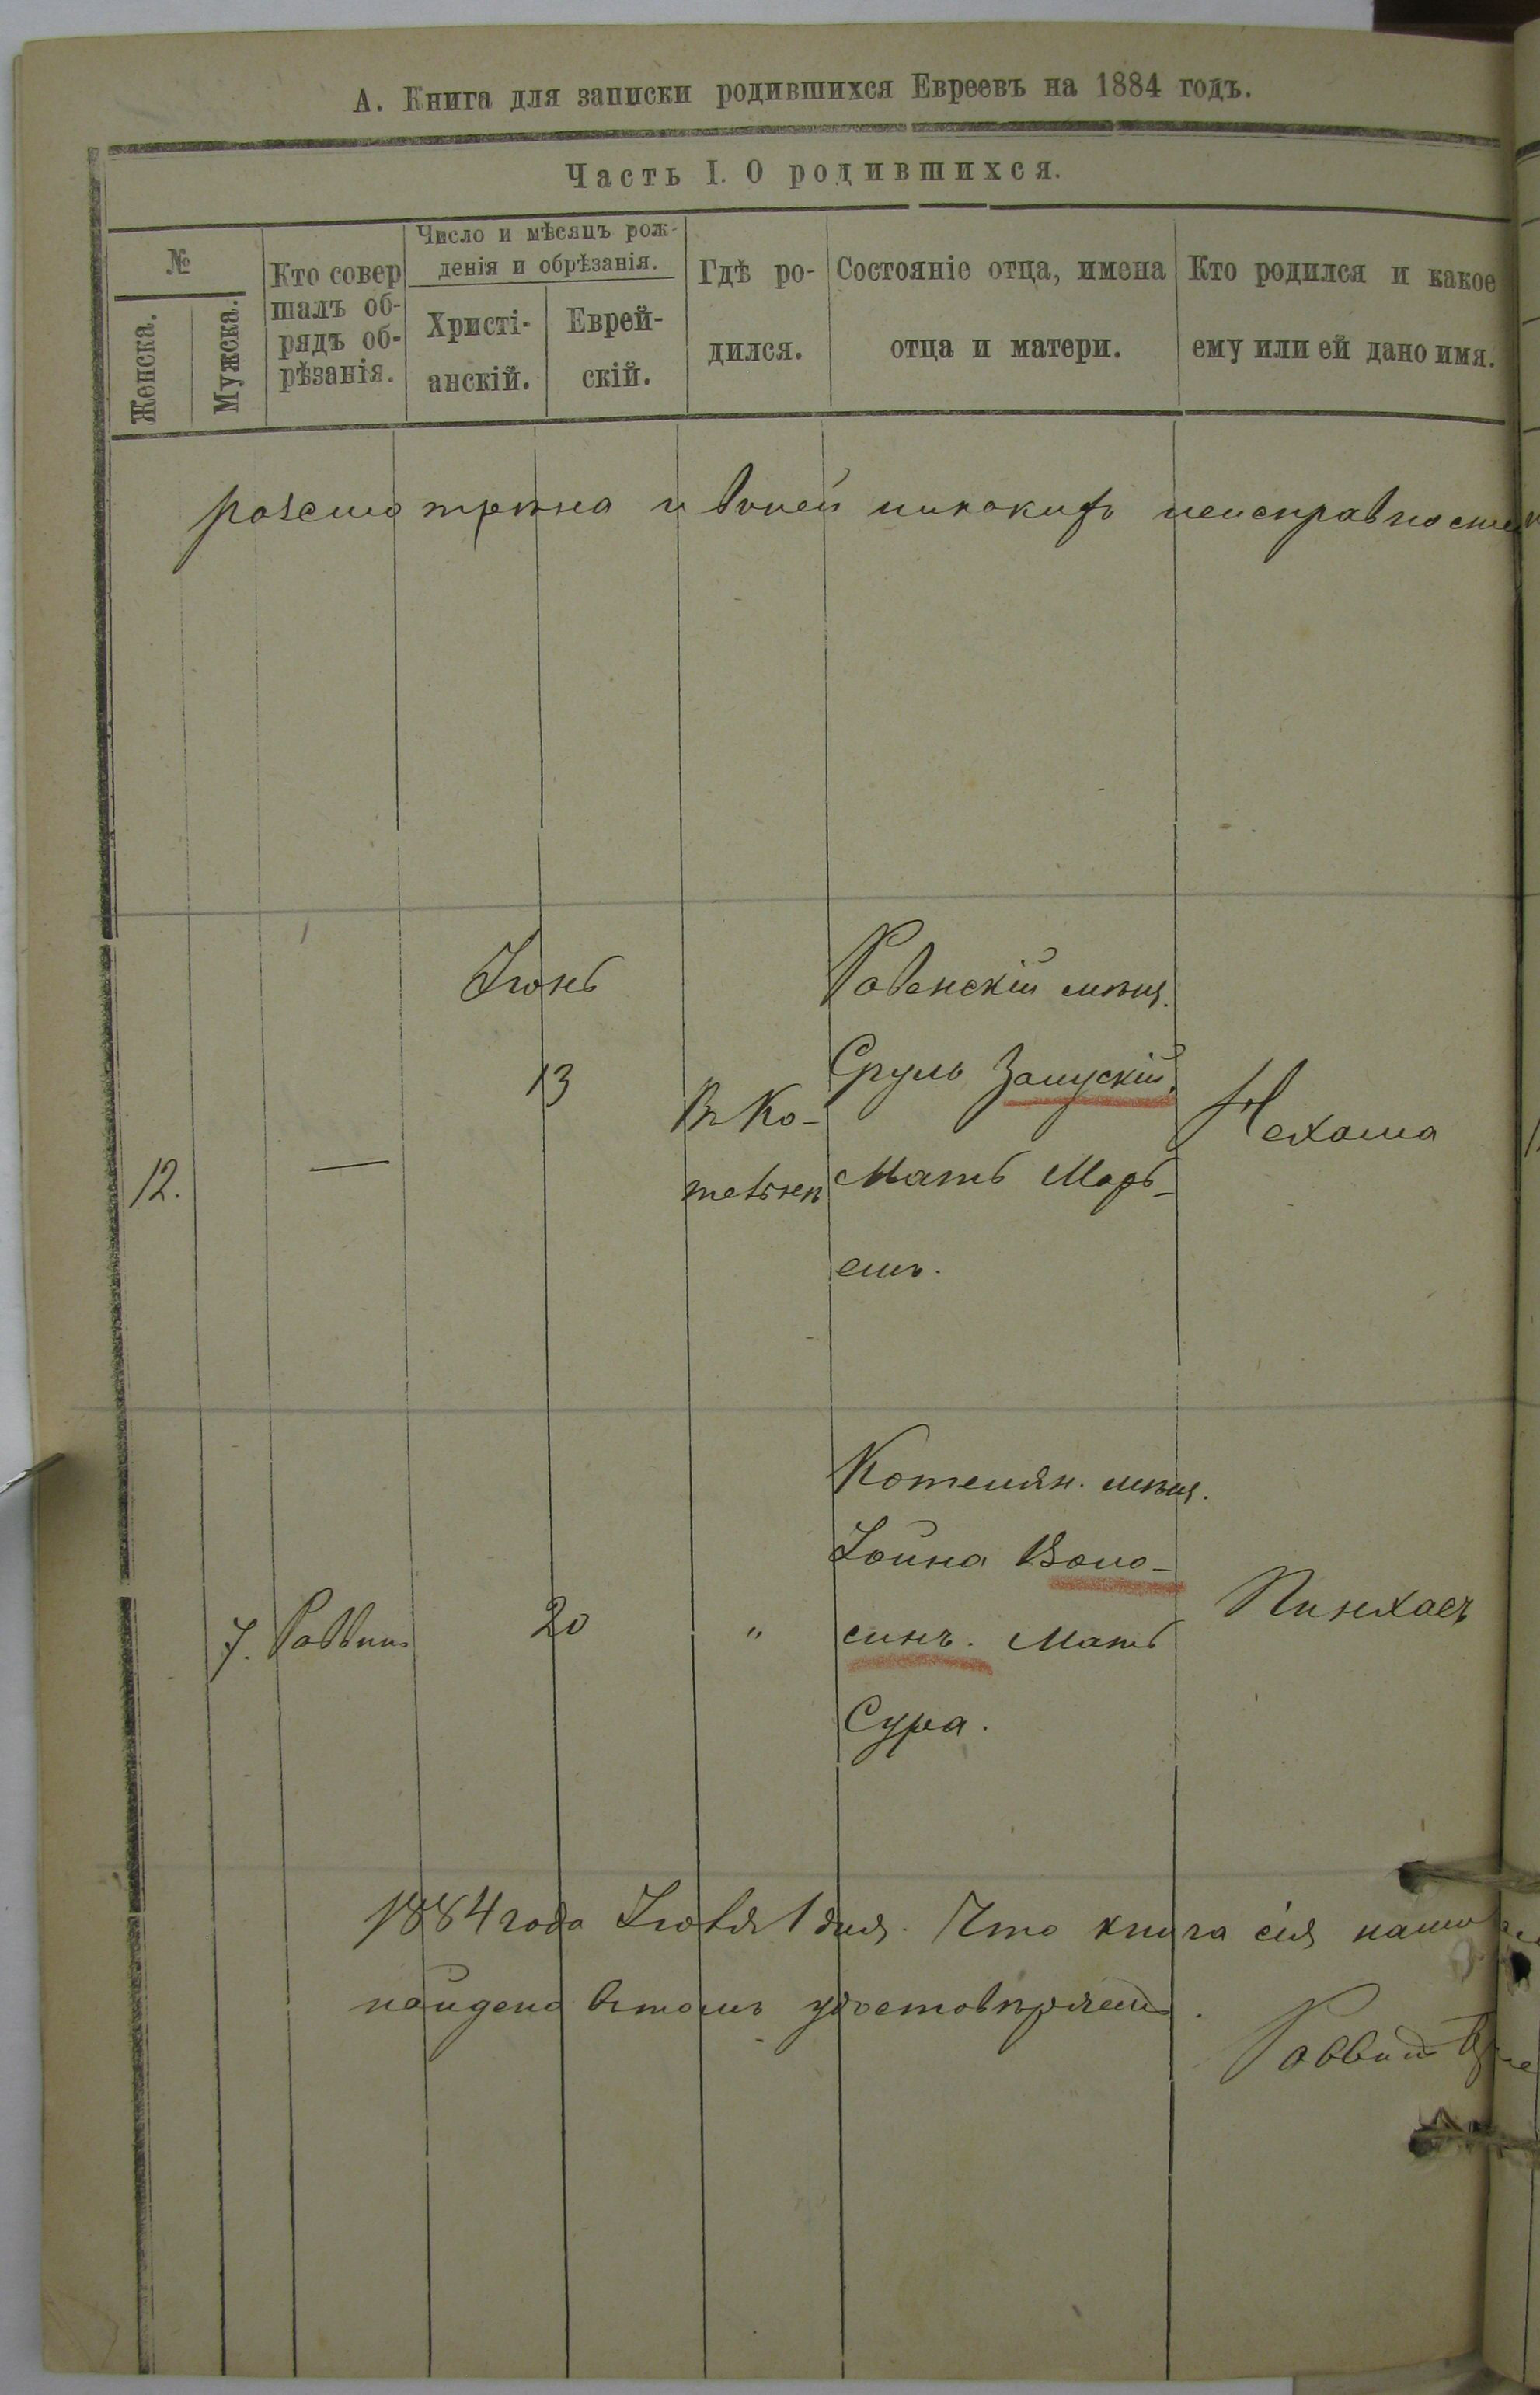 А. Книга для записки родившихся Евреевъ на 1884 годъ.
Часть I. О родившихся.
№
Женска.
Мужска.
Кто совер
шалъ об-
рядъ об-
рѣзанія.
Число и мѣсяцъ рож-
денія и обрѣзанія.
Христі-
анскій.
Еврей-
скій.
Гдѣ ро-
дился.
Состояніе отца, имена
отца и матери.
Кто родился и какое
ему или ей дано имя.
разсмотрѣна и в ней никакихъ неисправностей
Іюнь
12.
—
13
Въ Ко-
тельнѣ
Ровенскій мѣщ.
Сруль Залускій.
Мать Марь-
емъ.
Нехама
7.
Раввинъ
20
"
Котелян. мѣщ.
Іойна
синъ. Мать
Сура.
Пинхасъ
1884 года Іюля 1 дня. Что книга сія
найдено въ томъ удостовѣряемъ.
Раввинъ